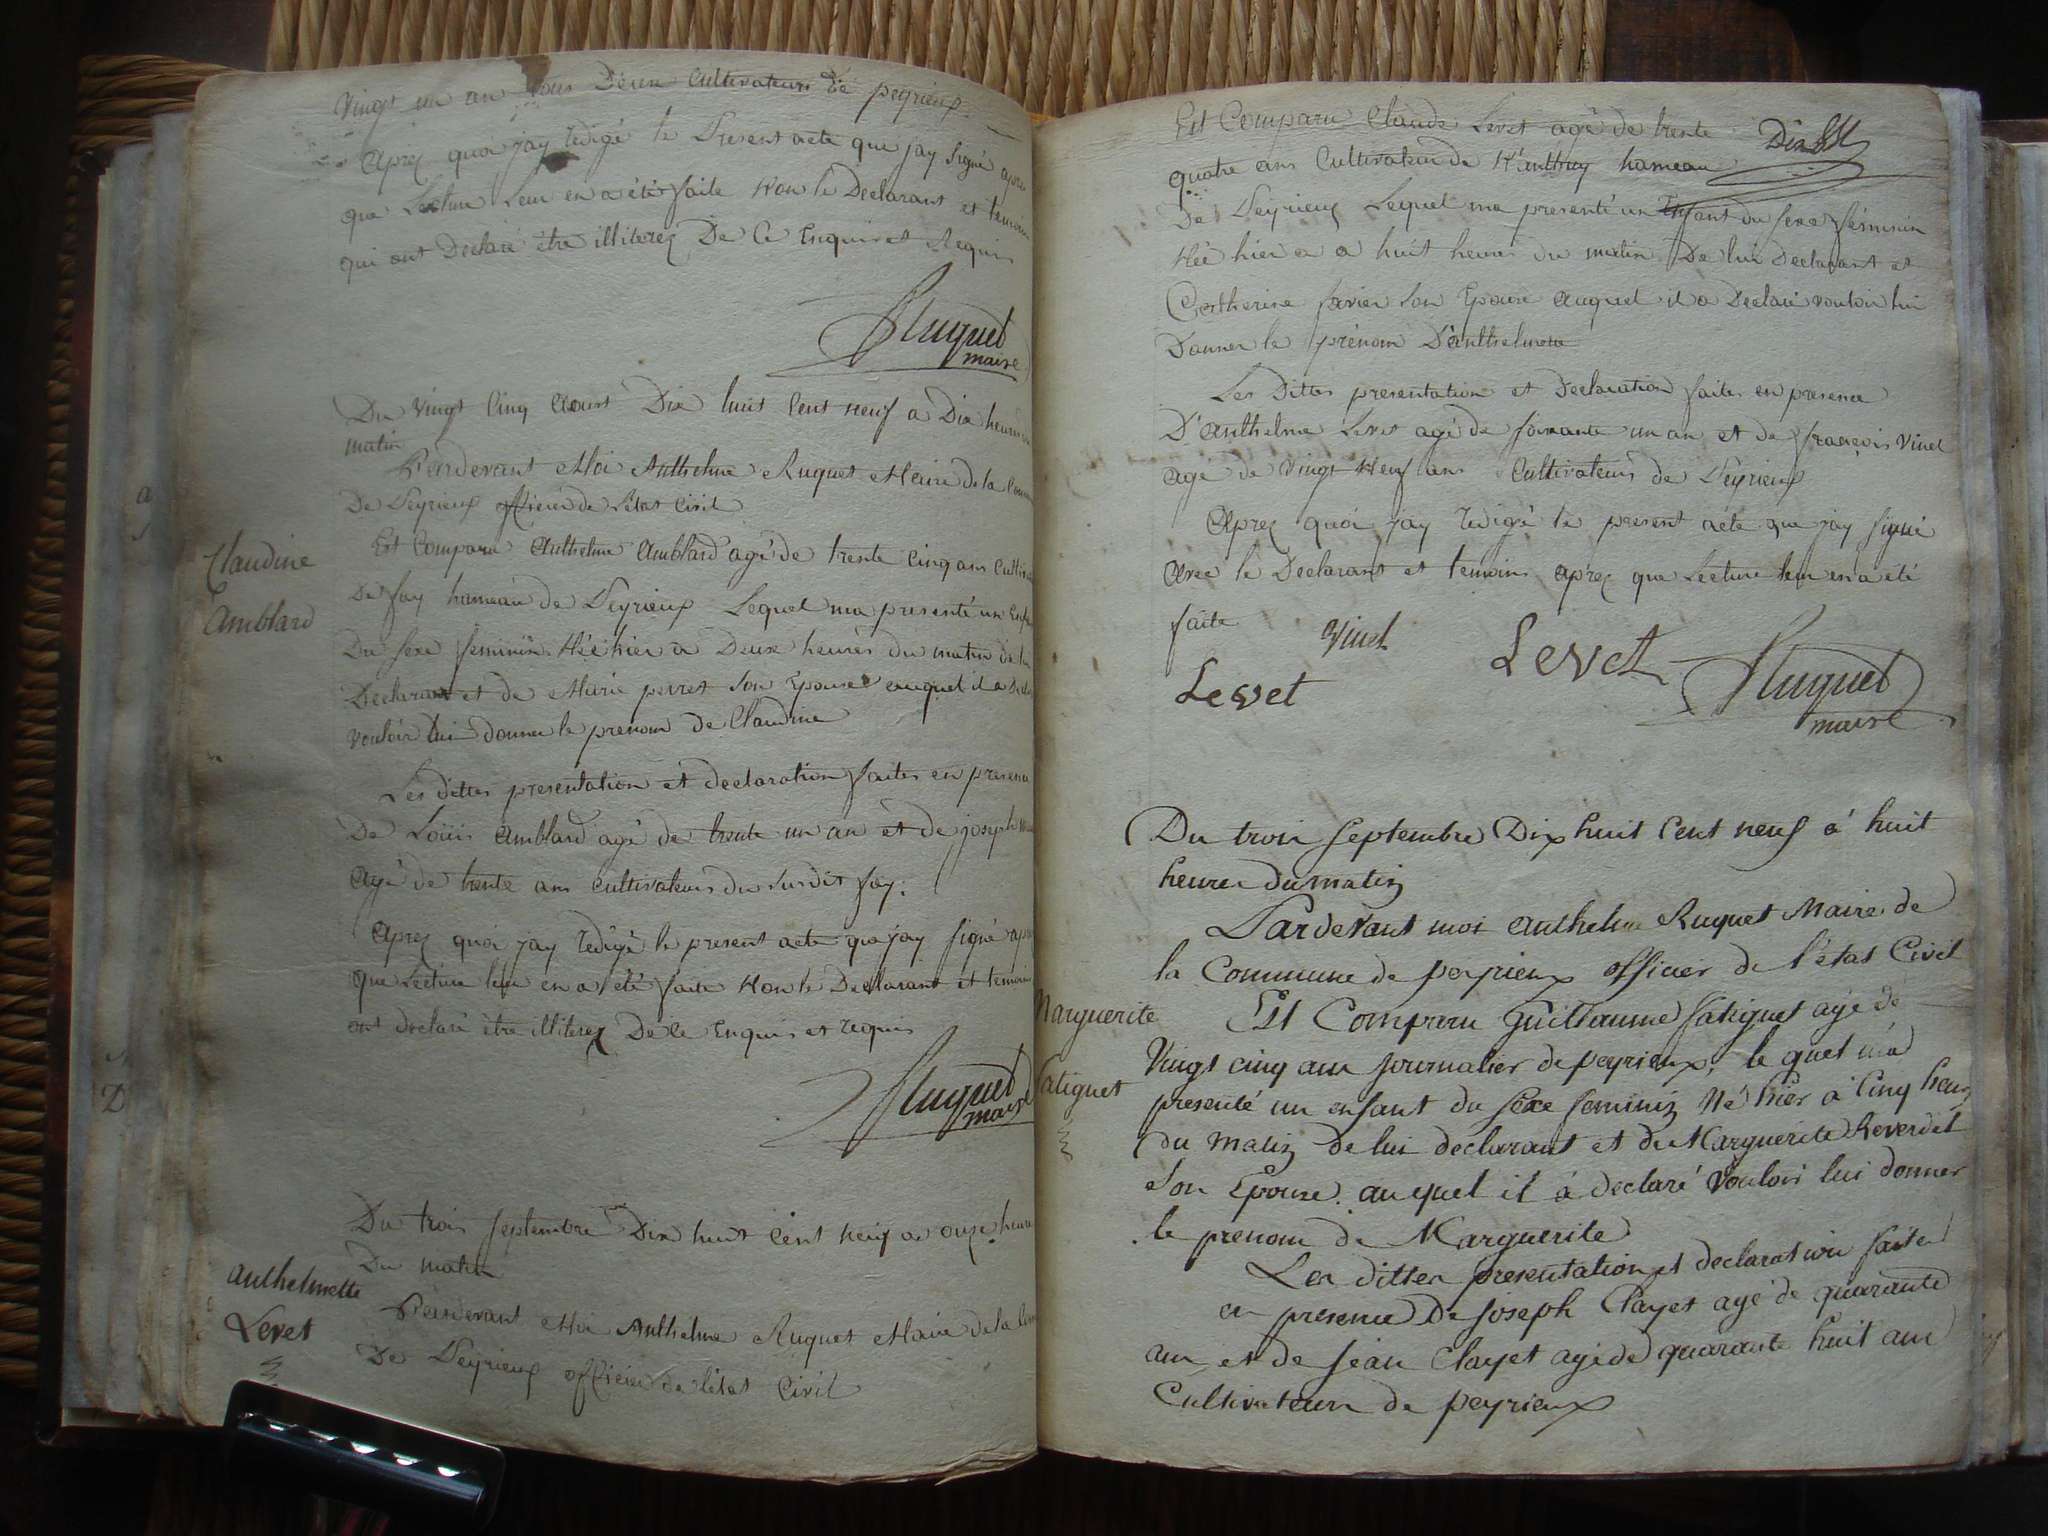 Vingt un an tous Deux Cultivateurs de peyrieux
Aprez quoi jay redigé le Present acte que jay signé apres
que Lecture Leur en a été faite Non le Declarant et temoins
qui ont Declaré être illiterez De Ce Enquis et Requis
Ruquet
maire
Du Vingt Cinq Aoust Dix huit Cent neuf a Dix heures du
matin
Pardevant Moi Anthelme Ruquet Maire de la Com
De Peyrieux officier de l'état Civil
Claudine
Amblard
Est Comparu Anthelme Amblard agé de trente Cinq ans Cultiv
De fay hameau de Peyrieux Lequel ma presenté un Enfa
Du sexe feminin Née hier a Deux heures du matin de lui
Declarant et de Marie perret Son Epouse auquel il a Decla
vouloir lui donner le prenom de Claudine
Les dittes presentation et declaration faites en presence
De Loüis Amblard agé de trente un an et de joseph
Agé de trente ans cultivateurs du susdit fay.
Aprez quoi jay redigé le present acte que jay signé apre
que Lecture leur en a été faite Non le Declarant et temoins
ont declaré être illiterez De Ce Enquis et requis
Ruquet
maire
Du trois Septembre Dix huit Cent neuf a onze heures
Du matin
Anthelmette
Levet
Pardevant Moi Anthelme Ruquet Maire de la Com
De Peyrieux officier de l'état Civil
Est Comparu Claude Levet agé de trente
quatre ans Cultivateur de hameau
De Peyrieux Lequel ma presenté un Enfant du sexe féminin
Née hier a huit heures du matin De lui Declarant et
Catherine favier Son Epouse auquel il a Declaré vouloir lui
Donner le prénom D'anthelmette
Les Dittes presentation et Declaration faites en presence
D'anthelme Levet agé de soixante un an et de françois Vinet
agé de Vingt Neuf ans Cultivateurs de Peyrieux
Aprez quoi jay redigé le present acte que jay signé
Avec le Declarant et temoins aprez que Lecture leur en a été
faite Vinet Levet
Levet Ruquet
maire
Du trois septembre Dix huit Cent neuf á huit
heures du matin
Pardevant moi Anthelme Ruquet Maire de
la Commune de peyrieux officier de l'état Civil
Marguerite
fatiguet
Est Comparu guillaume fatiguet agé de
Vingt cinq ans journalier de peyrieux, le quel m'a
presenté un enfant du sexe feminin Né hier à Cinq heures
du matin de lui declarant et de Marguerite Reverdet
Son Epouse auquel il à declaré vouloir lui donner
le prenom de Marguerite
Les dittes presentation et declaration faites
en presence De joseph Clayet agé de quarante
ans et de jean Clayet agé de quarante huit ans
Cultivateurs de peyrieux